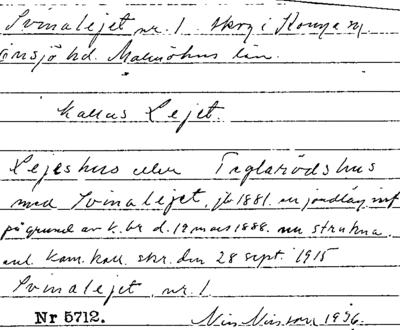 Svinalejet nr. 1. skog i Konga sn.
Onsjö hd. Malmöhus län.
kallas Lejet.
Lejeshus eller Traglarödshus
med Svinalejet, jb 1881. nu jordläg. inf
på grund av k. br d. 19 mars 1888. nu strukna
enl. kam. koll. skr. den 28 sept. 1915
Svinalejet, nr. 1.
Nr 5712. Nils Nilsson 1936.